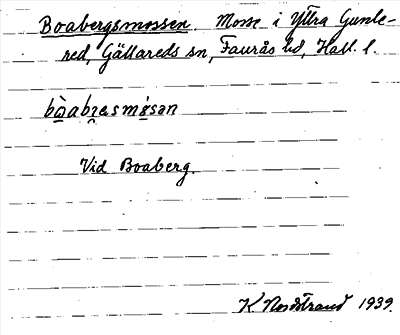 Boabergsmossen. Mosse i Yttra Gunle-
red, Gällareds sn, Faurås hd, Hall. l.
Vid Boaberg.
K Nordstrand 1939.